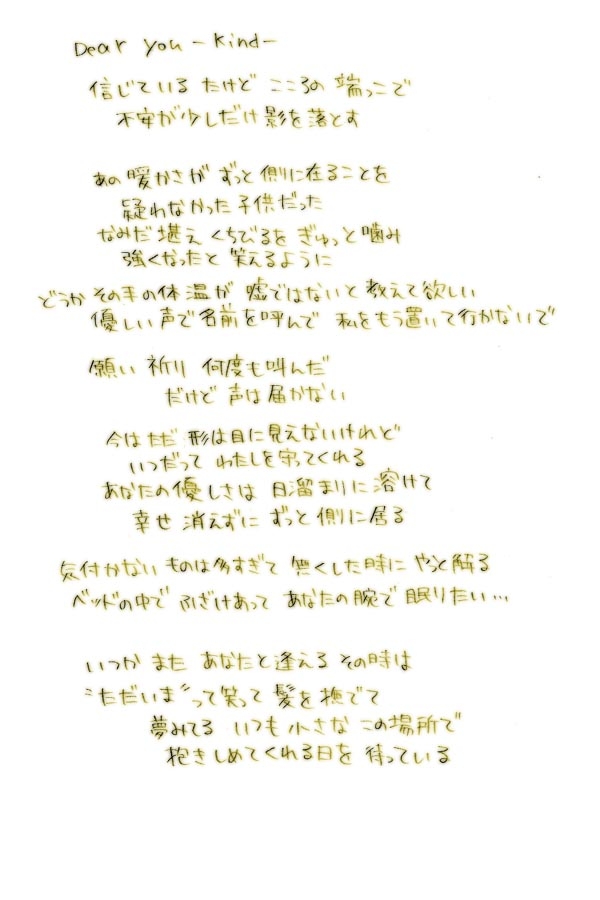 Dear you -Kind-
信じている だけど こころの 端っこで
不安が少しだけ影を落とす
あの 暖かさが ずっと 側に在ることを
疑わなかった子供だった
なみだ堪え くちびるを ぎゅっと噛み
強くなったと 笑えるように
どうか その手の体温が 嘘ではないと 教えて欲しい
優しい声で名前を呼んで 私をもう置いて行かないで
願い 祈り 何度も叫んだ
だけど 声は届かない
今はただ 形は目に見えないけれど
いつだって わたしを守ってくれる
あなたの優しさは 日溜まりに溶けて
幸せ 消えずに ずっと 側に居る
気付かない ものは多すぎて 無くした時に やっと解る
ベッドの中で ふざけあって あなたの腕で 眠りたい…
いつか また あなたと逢える その時は
“ただいま”って笑って 髪を撫でて
夢みてる いつも 小さな この場所で
抱きしめてくれる日を 待っている